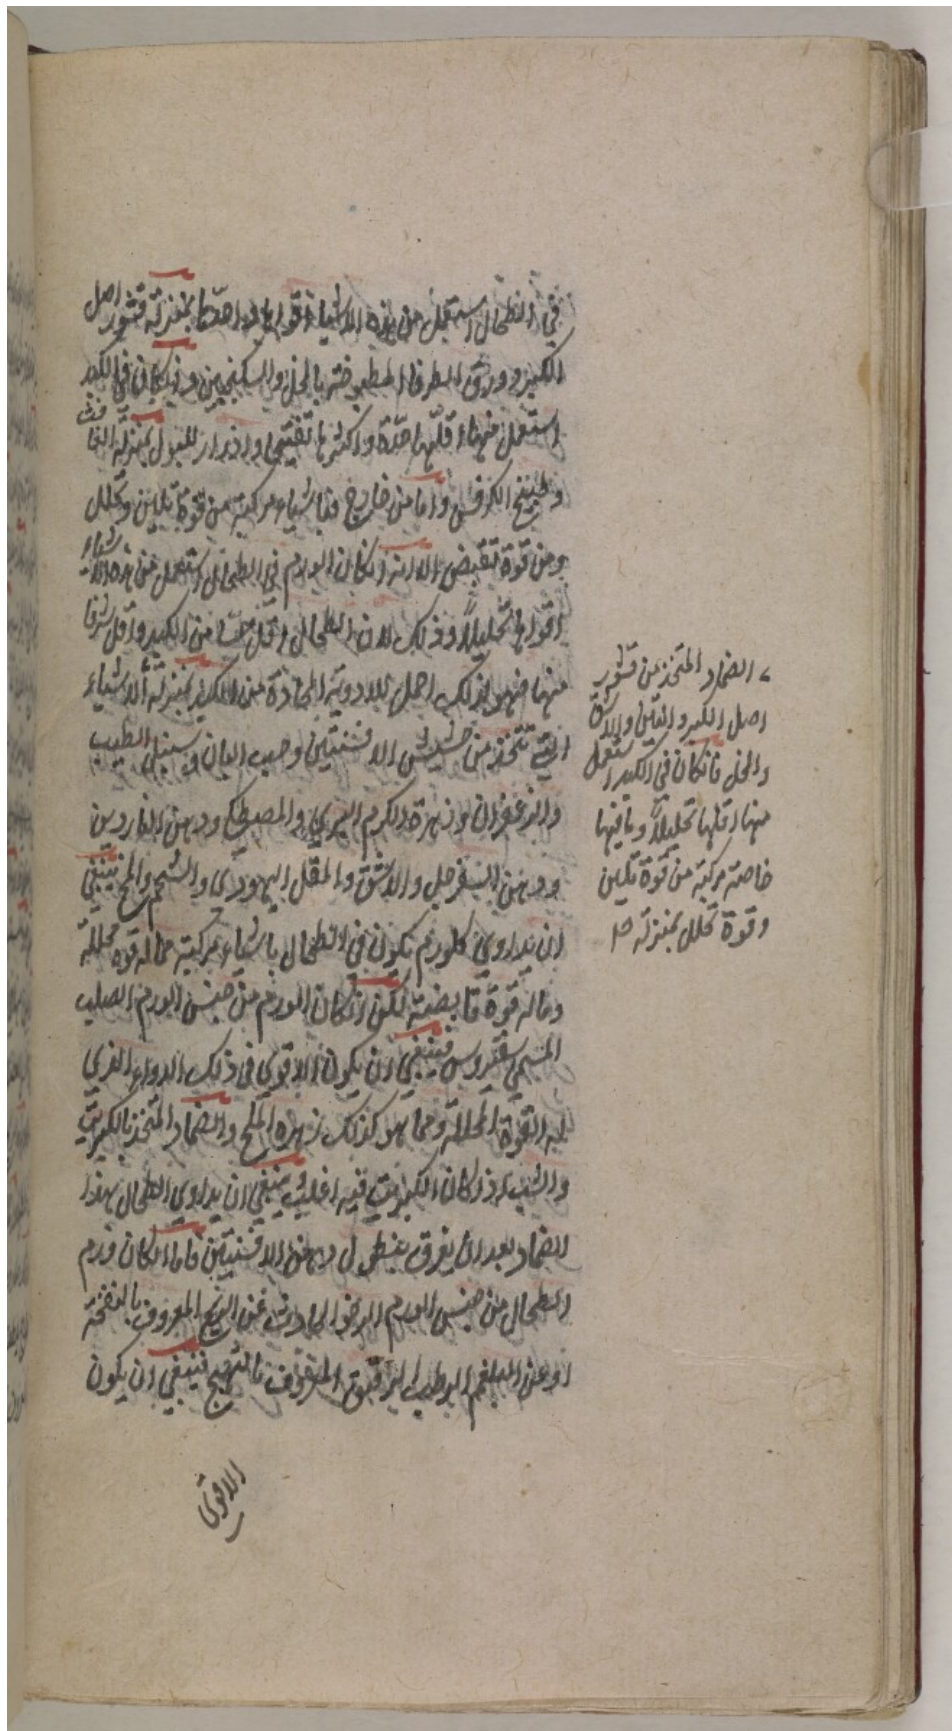 في الطحال استعمل من هذه الاشياء اقواها واحدها بمنزلة قشور اصل
الكبر وورق الطرفا المطبوخة بالخل والسكنجبين وان كان في الكبد
استعمل منها اقلها حدة واكثرها تفتيحا وادرار للبول بمنزلة الغافث
وطبيخ الكرفس واما من خارج فباشياء مركبة من قوة تلين وتحلل
ومن قوة تقبض الا انه ان كان الورم في الطحال استعمل من هذه الاشياء
اقواها تحليلا وذلك لان الطحال اقل حسا من الكبد واقل شرفا
منها فهو لذلك احمل للادوية الحادة من الكبد بمنزلة الاشياء
التي تتخذ من حشيش الافسنتين وحب البان وسنبل الطيب
والزعفران وزهرة الكرم البري والمصطكي ودهن الناردين
ودهن السفرجل والاشق والمقل اليهودي والشحم والمخ ينبغي
ان يداوي كل ورم يكون في الطحال باشياء مركبة مما له قوة محللة
وماله قوة قابضة لكن ان كان الورم من جنس الورم الصلب
المسمى سقيروس فينبغي ان يكون الاقوي في ذلك الدواء الذي
له القوة المحللة ومما هو كذلك زهرة الملح والضماد المتخذ بالكبريت
والشب اذا كان الكبريت فيه اغلب ينبغي ان يداوي الطحال بهذا
الضماد بعد ان يعرق بنطول دهن الافسنتين فاما ان كان ورم
الطحال من جنس الورم الرخو الحادث عن الريح المعروف بالنفخة
او عن البلغم الرطب الرقيق المعروف بالتهيج فينبغي ان يكون
الاقوي
الضماد المتخذ من قشور
اصل الكبر والتين
والخل فان كان في الكبد استعمل
منها اقلها تحليلا وتافيها
خاصة مركبة من قوة تلين
وقوة تحلل بمنزلة